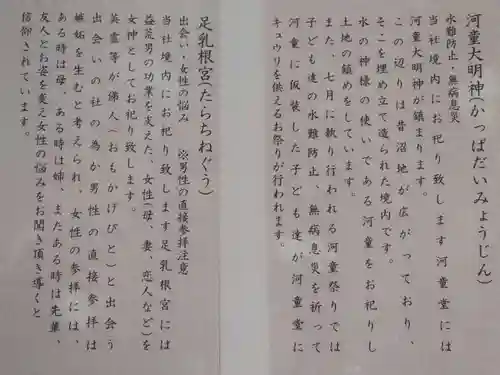 河童大明神(かっぱだいみょうじん)
水難防止・無病息災
当社境内にお祀り致します河童堂には
河童大明神が鎮まります。
この辺りは昔沼地が広がっており、
そこを埋め立て造られた境内です。
水の神様の使いである河童をお祀りし
土地の鎮めをしています。
また、七月に執り行われる河童祭りでは
子ども達の水難防止、無病息災を祈って
河童に仮装した子ども達が河童堂に
キュウリを供えるお祭りが行われます。
足乳根宮(たらちねぐう)
出会い・女性の悩み ※男性の直接参拝注意
当社境内にお祀り致します足乳根宮には
益荒男の功業を支えた、女性(母、妻、恋人など)を
女神としてお祀り致します。
英霊等が俤人(おもかげびと)と出会う
出会いの社の為か男性の直接参拝は
嫉妬を生むと考えられ、女性の参拝には、
ある時は母、ある時は姉、またある時は先輩、
友人とお姿を変え女性の悩みをお聞き頂き導くと
信仰されています。